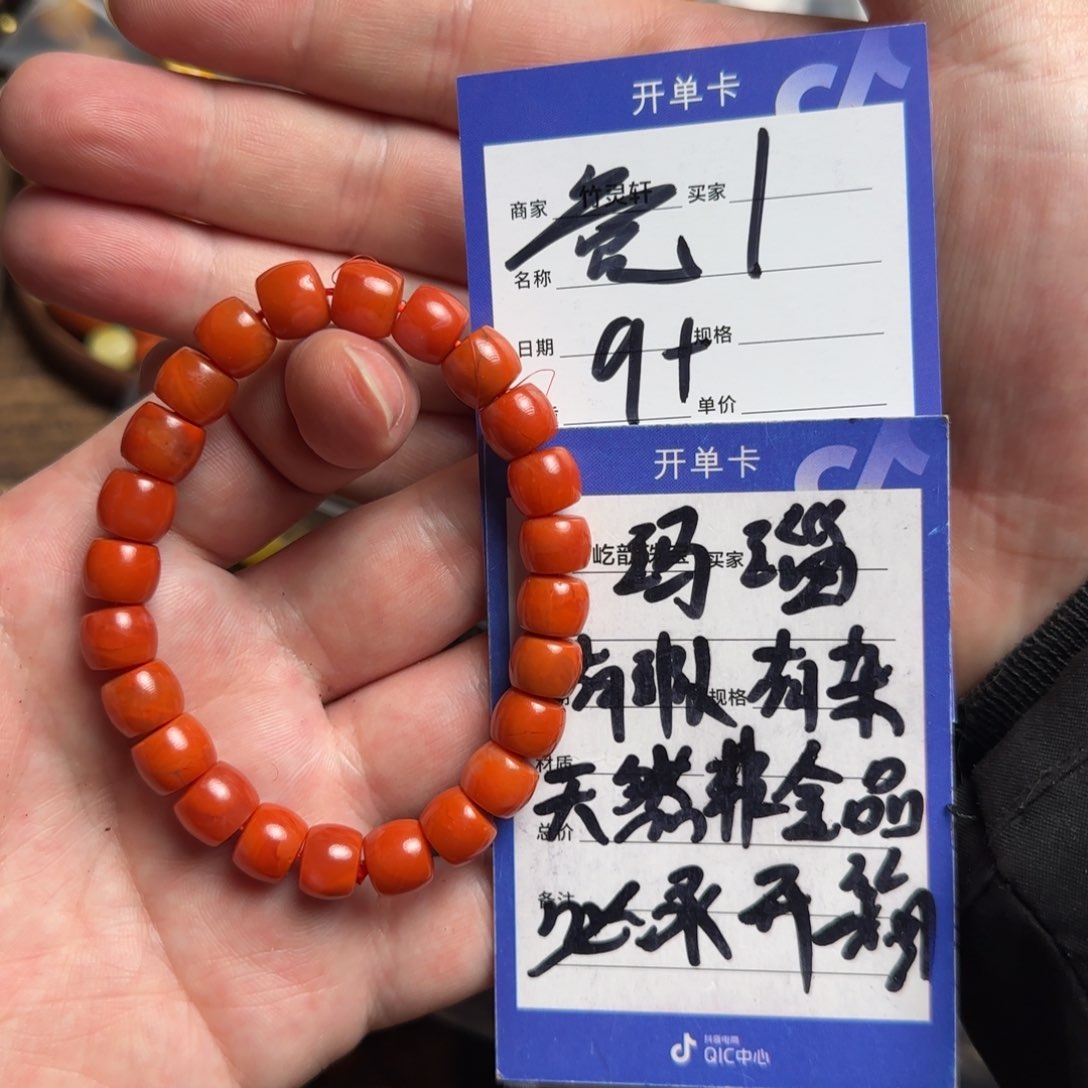 开单卡
商家 竹灵轩 买家 1
名称
日期 9+ 规格
单价
开单卡
屹韵 买家
玛瑙
规格
有瑕有杂
材质
天然非全品
总价
备注
必录开箱
抖音电商
QIC中心